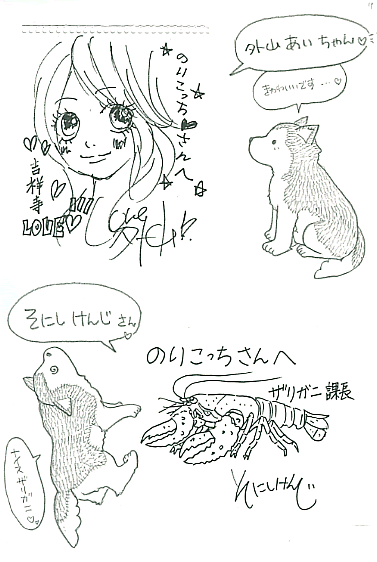 外山あいちゃん♡
まぁかわいいです…♡
☆のりこっちさんへ☆
吉祥寺
LOVE
そにし けんじ さん
のりこっちさんへ
ザリガニ課長
そにしけんじ
ナイスザリガニ♡